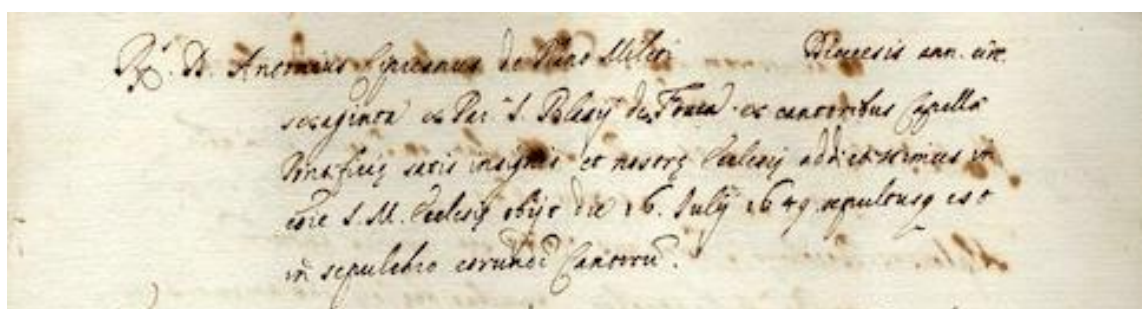 R. D. Antonius Ciprianus de Diano Diœcesis ann. cir.
sexaginta ex Par. S. Blasij de Fovea ex cantoribus Capellæ
Pontificię satis insignis et nostrę Ecclesię addictissimus in
S. M. Ecclesię obijt die 16. Julij 1649 sepultusq est
in sepulchro eorundē Cantorū.